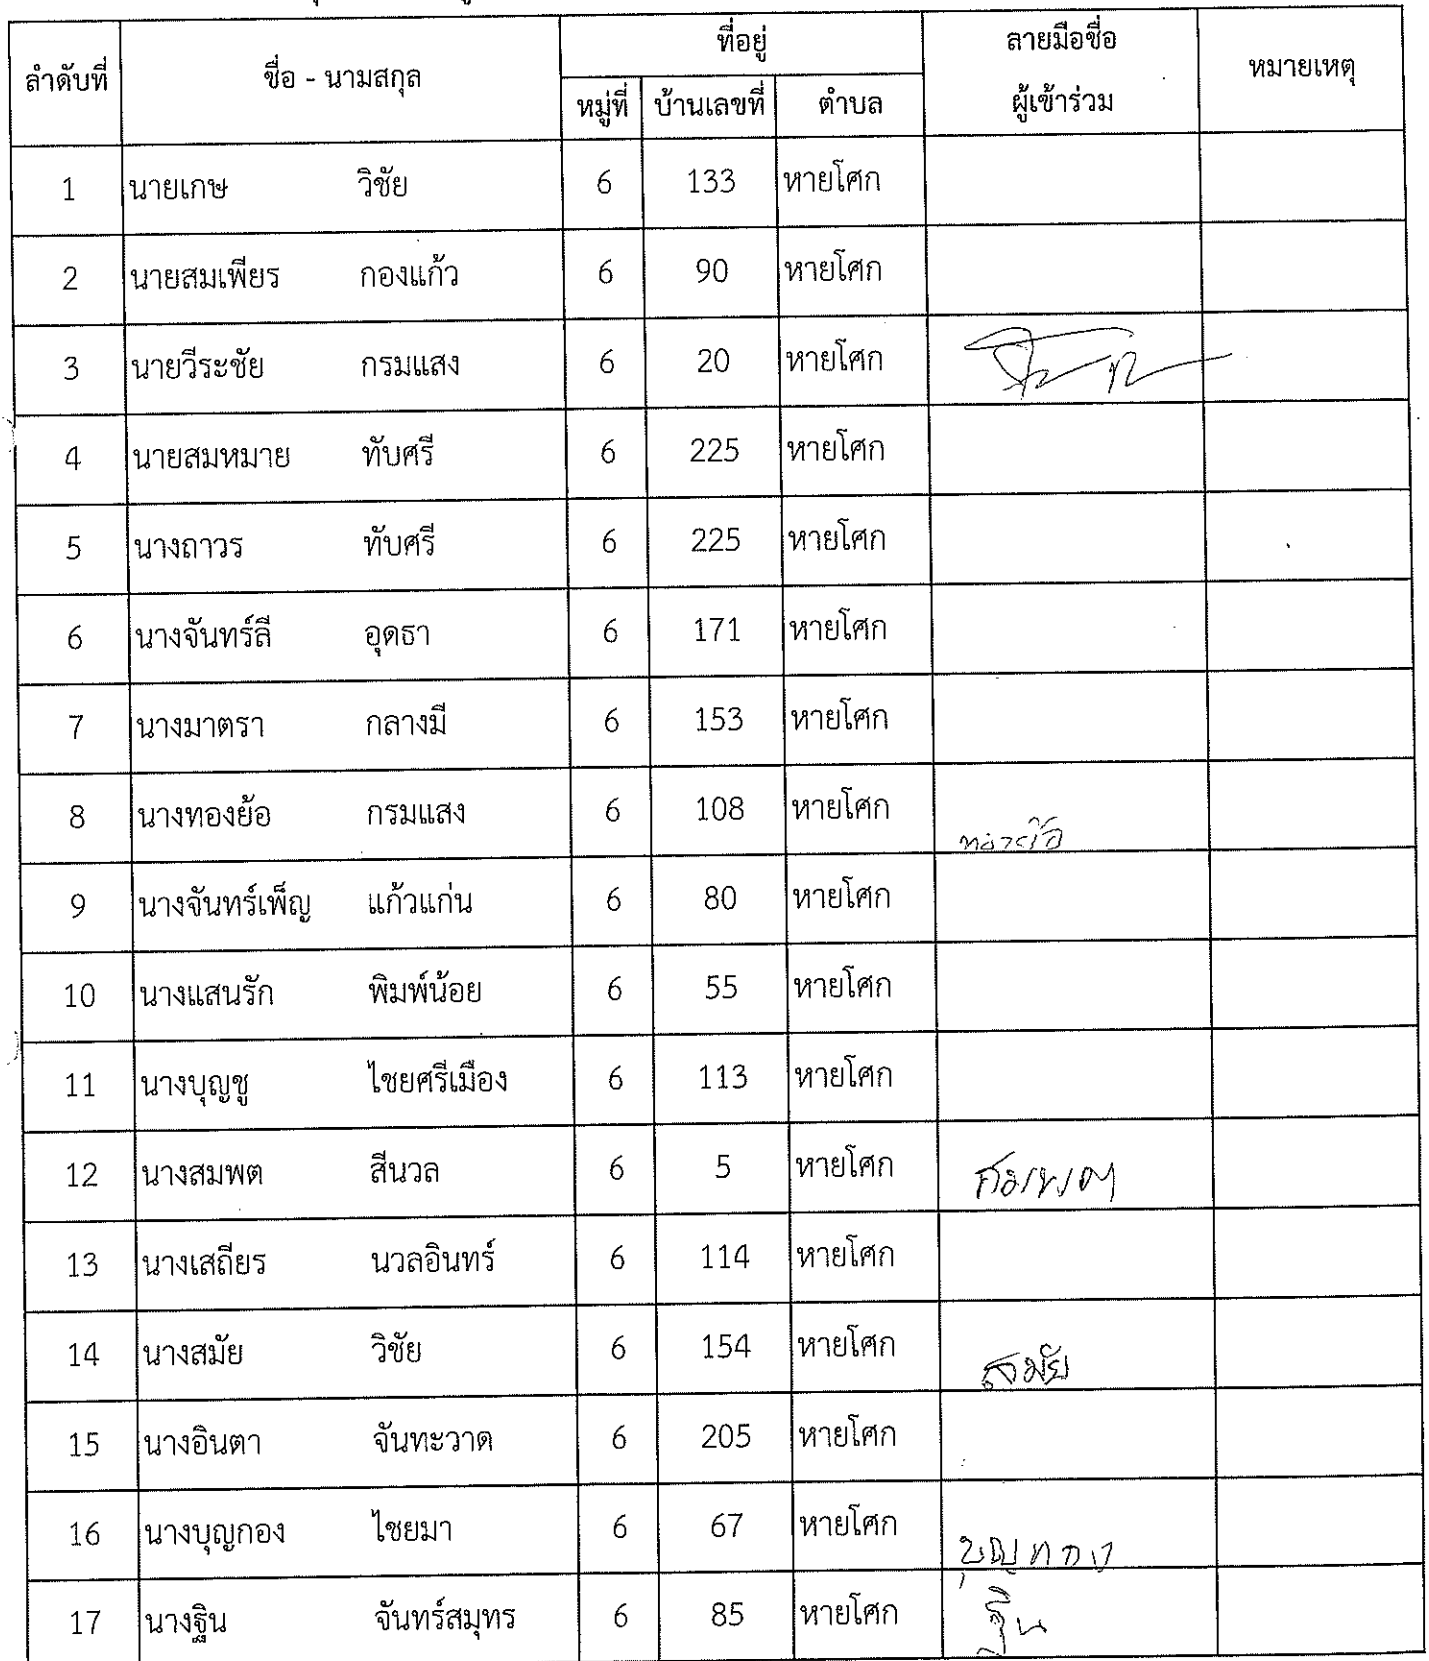 ลำดับที่ ชื่อ - นามสกุล ที่อยู่ ลายมือชื่อ หมายเหตุ
หมู่ที่ บ้านเลขที่ ตำบล ผู้เข้าร่วม
1 นายเกษ วิชัย 6 133 หายโศก
2 นายสมเพียร กองแก้ว 6 90 หายโศก
3 นายวีระชัย กรมแสง 6 20 หายโศก
4 นายสมหมาย ทับศรี 6 225 หายโศก
5 นางถาวร ทับศรี 6 225 หายโศก
6 นางจันทร์ลี อุดธา 6 171 หายโศก
7 นางมาตรา กลางมี 6 153 หายโศก
8 นางทองย้อ กรมแสง 6 108 หายโศก ทองย้อ
9 นางจันทร์เพ็ญ แก้วแก่น 6 80 หายโศก
10 นางแสนรัก พิมพ์น้อย 6 55 หายโศก
11 นางบุญชู ไชยศรีเมือง 6 113 หายโศก
12 นางสมพต สีนวล 6 5 หายโศก สมพต
13 นางเสถียร นวลอินทร์ 6 114 หายโศก
14 นางสมัย วิชัย 6 154 หายโศก สมัย
15 นางอินตา จันทะวาด 6 205 หายโศก
16 นางบุญกอง ไชยมา 6 67 หายโศก บุญกอง
17 นางฐิน จันทร์สมุทร 6 85 หายโศก ฐิน